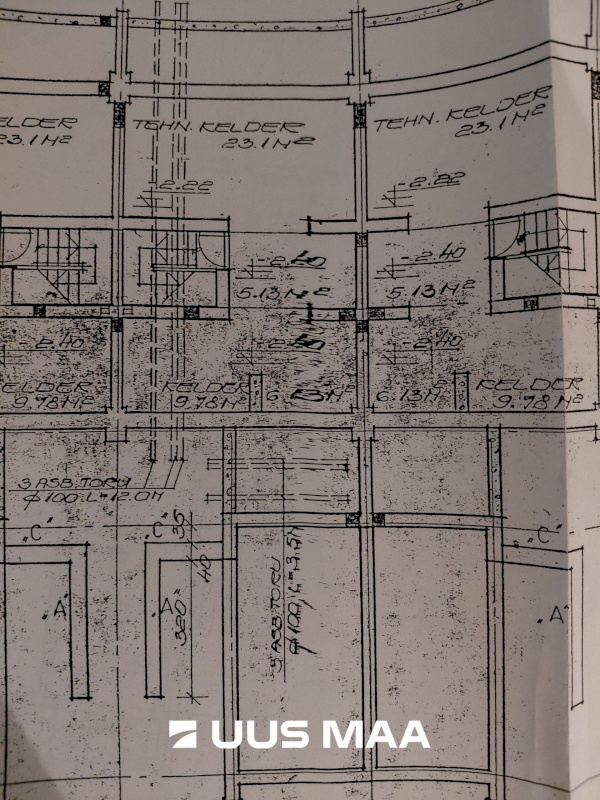 ELDER
23.1 M²
TEHN. KELDER
23.1 M²
TEHN. KELDER
23.1 M²
-2.22
-2.22
-2.40
5.13 M²
-2.40
5.13 M²
-2.40
-2.40
-2.40
KELDER
9.78 M²
KELDER
9.78 M²
6.13 M²
6.13 M²
KELDER
9.78 M²
3 ASB. TORU
ϕ100; L=12.0M
"C"
"C"
35
"C"
40
"A"
"A
320
3 ASB. TORU
"A"
UUS MAA